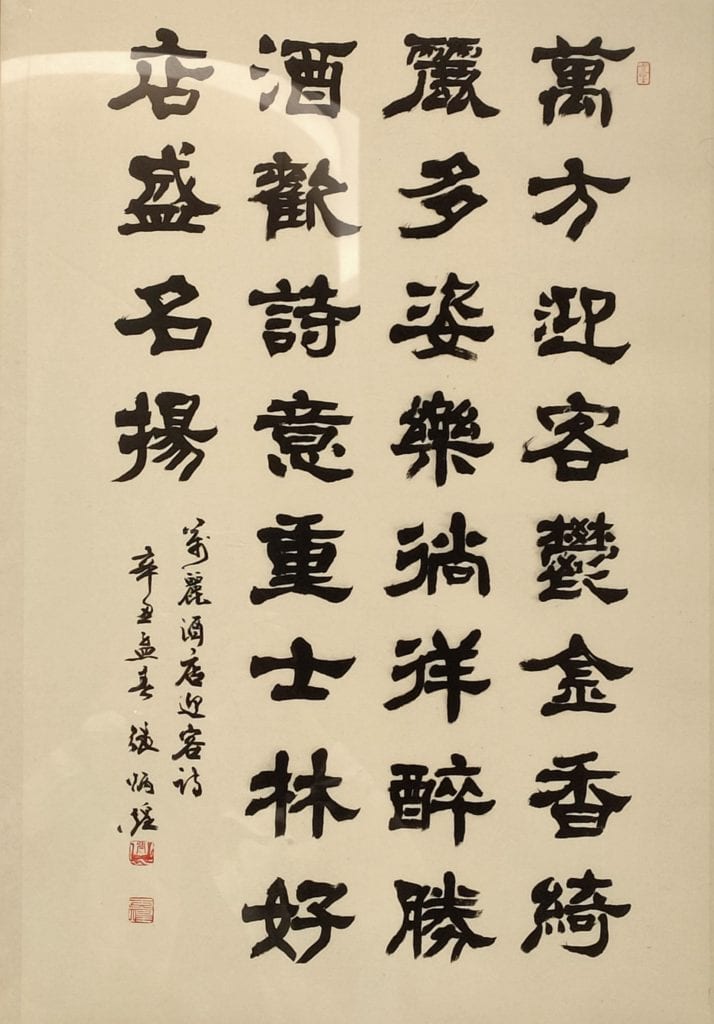 萬方迎客鬱金香綺
麗多姿樂徜徉醉勝
酒歡詩意重士林好
店盛名揚
萬麗酒店迎客詩
辛丑孟春 炳煌